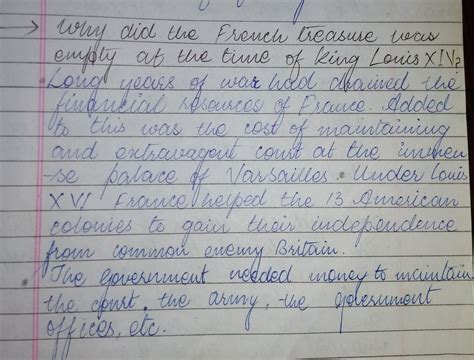 → Why did the French treasure was
empty at the time of king Louis XIV?
Long years of war had drained the
financial resources of France. Added
to this was the cost of maintaining
and extravagent court at the immen
-se palace of Varsailles. Under Louis
XVI France helped the 13 American
colonies to gain their independence
from common enemy Britain.
• The government needed money to maintain
the court, the army, the government
offices, etc.